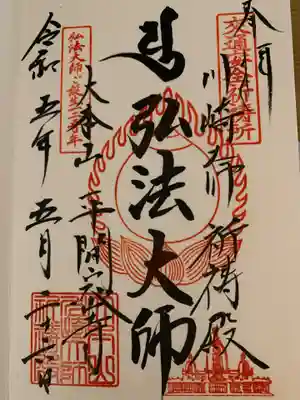 奉拝
交通安全祈祷所
川崎大師 祈祷殿
弘法大師
弘法大師ご誕生一二五〇年
大本山 平間寺
令和五年 五月二十六日